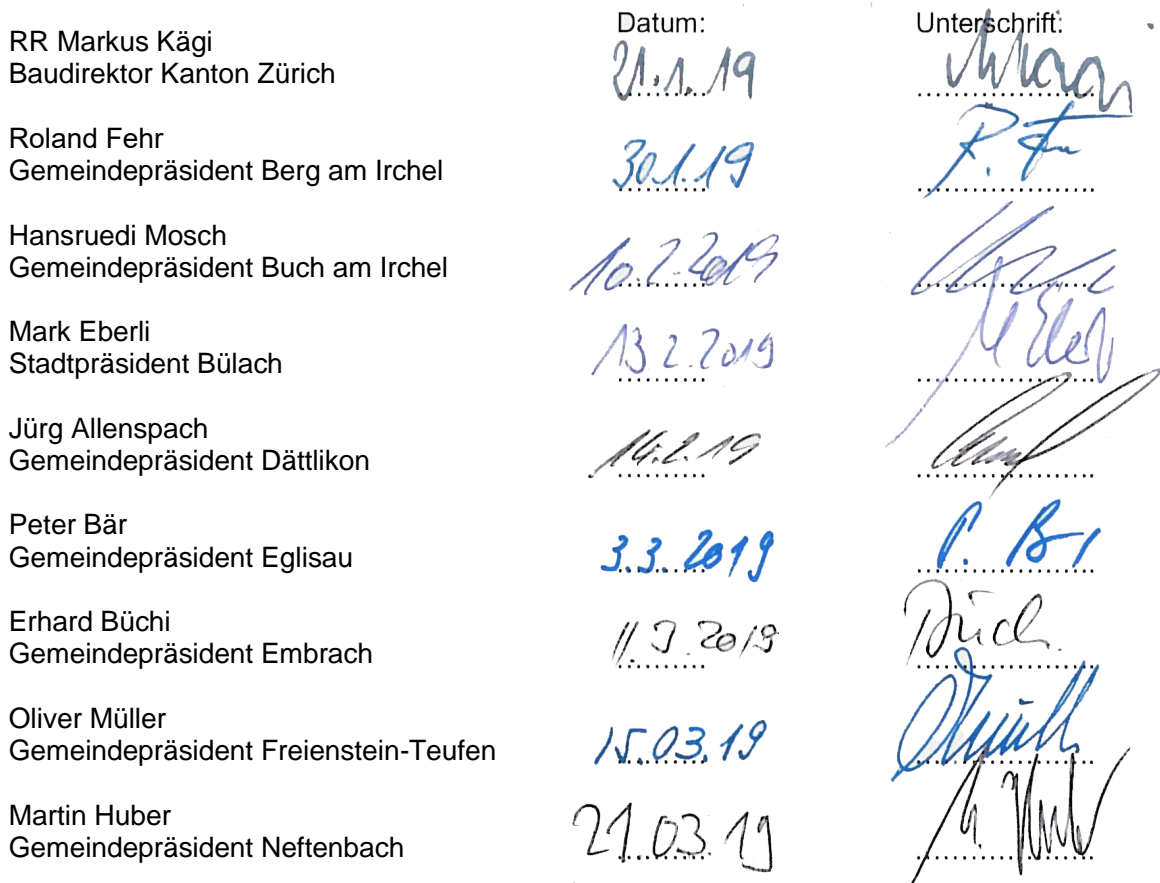 Datum: Unterschrift:
RR Markus Kägi
Baudirektor Kanton Zürich 21.1.19
Roland Fehr
Gemeindepräsident Berg am Irchel 30.1.19 R. Fehr
Hansruedi Mosch
Gemeindepräsident Buch am Irchel 10.2.2019
Mark Eberli
Stadtpräsident Bülach 13.2.2019 M Eberli
Jürg Allenspach
Gemeindepräsident Dättlikon 14.2.19
Peter Bär
Gemeindepräsident Eglisau 3.3.2019 P. Bär
Erhard Büchi
Gemeindepräsident Embrach 11.3.2019 Büchi
Oliver Müller
Gemeindepräsident Freienstein-Teufen 15.03.19 OMüller
Martin Huber
Gemeindepräsident Neftenbach 21.03.19 M. Huber